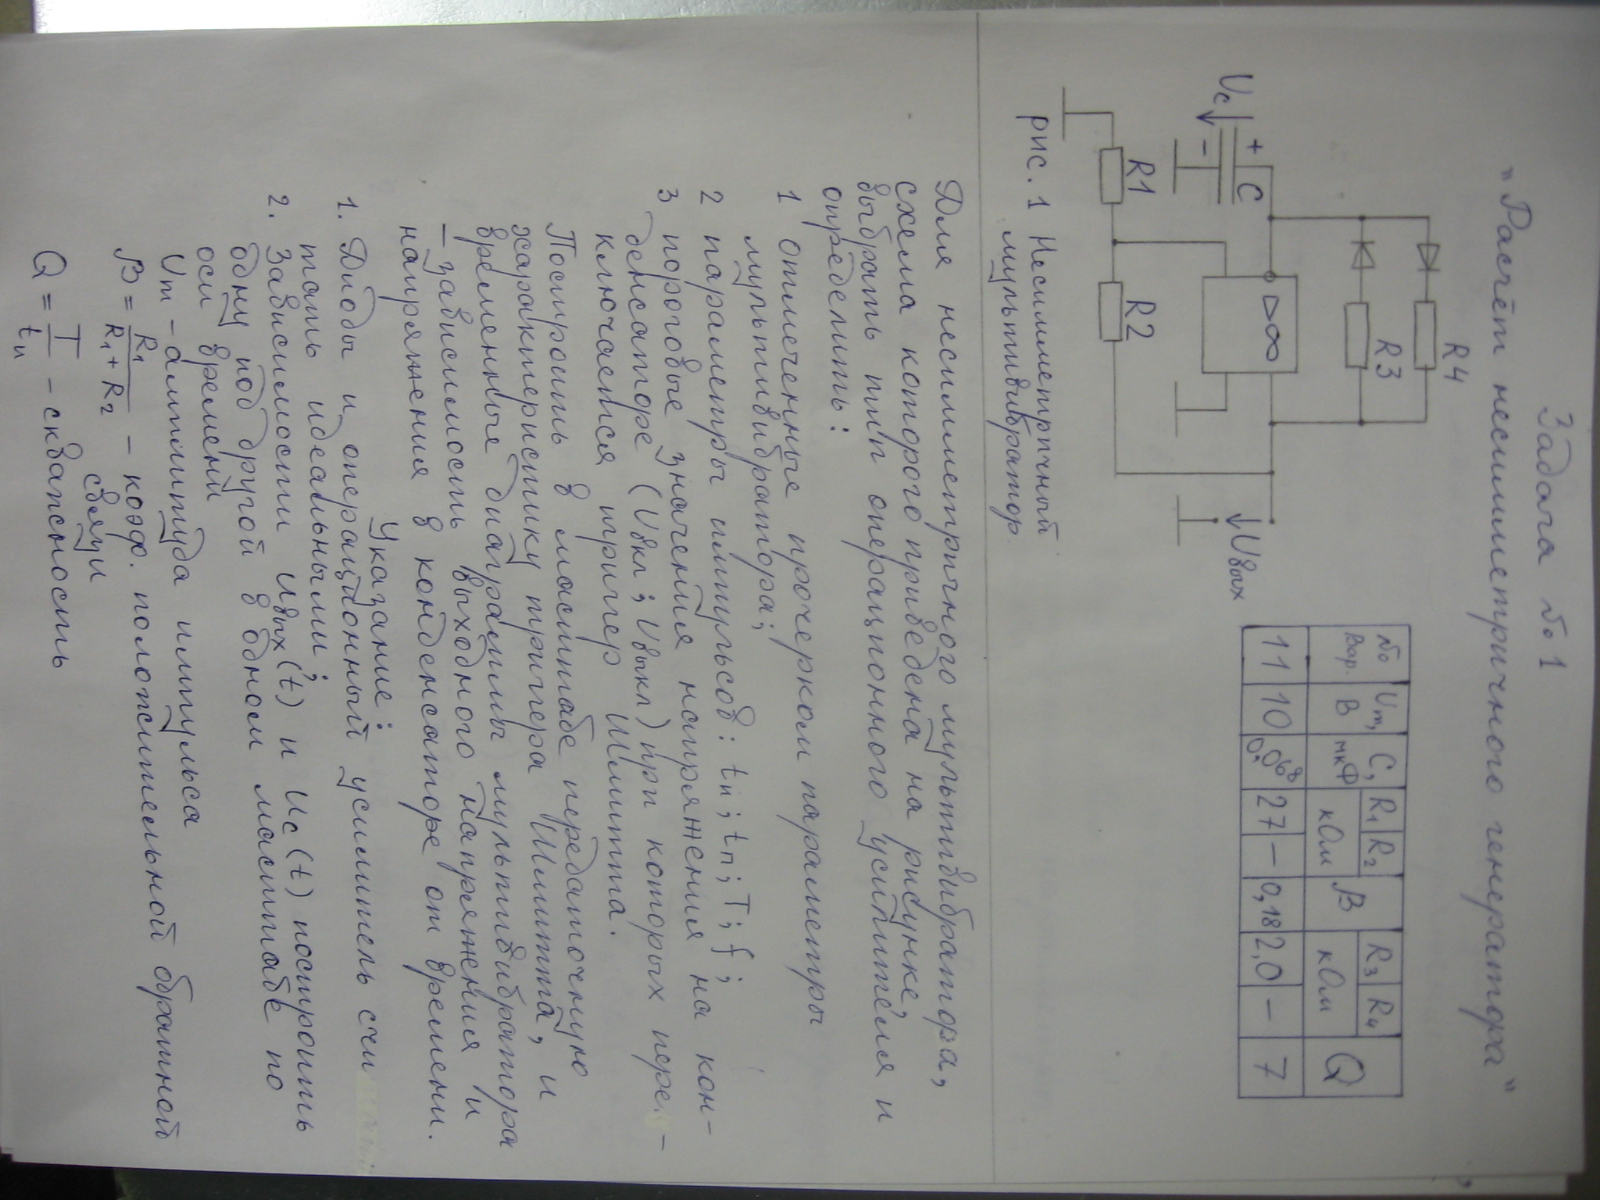 Задача № 1
"Расчёт несимметричного генератора"
R4
R3
▷∞
C
+
-
Uc
R1
R2
Uвых
рис. 1 Несимметричный
мультивибратор
№ Вар. | Um, В | C, мкФ | R1 | R2 кОм | β | R3 | R4 кОм | Q
11 | 10 | 0,068 | 27 | – | 0,18 | 2,0 | – | 7
Для несимметричного мультивибратора,
схема которого приведена на рисунке,
выбрать тип операционного усилителя и
определить:
1 отмеченные прочерком параметры
мультивибратора;
2 параметры импульсов: tи; tп; T; f;
3 пороговые значения напряжения на кон-
денсаторе (Uвкл; Uвыкл) при которых пере-
ключается триггер Шмитта.
Построить в масштабе передаточную
характеристику триггера Шмитта, и
временные диаграммы мультивибратора
– зависимость выходного напряжения и
напряжения в конденсаторе от времени.
Указание:
1. Диоды и операционный усилитель счи
тать идеальными;
2. Зависимости Uвых (t) и Uc (t) построить
одну под другой в одном масштабе по
оси времени
Um – амплитуда импульса
β = R1 / (R1 + R2) – коэф. положительной обратной
связи
Q = T / tи – скважность